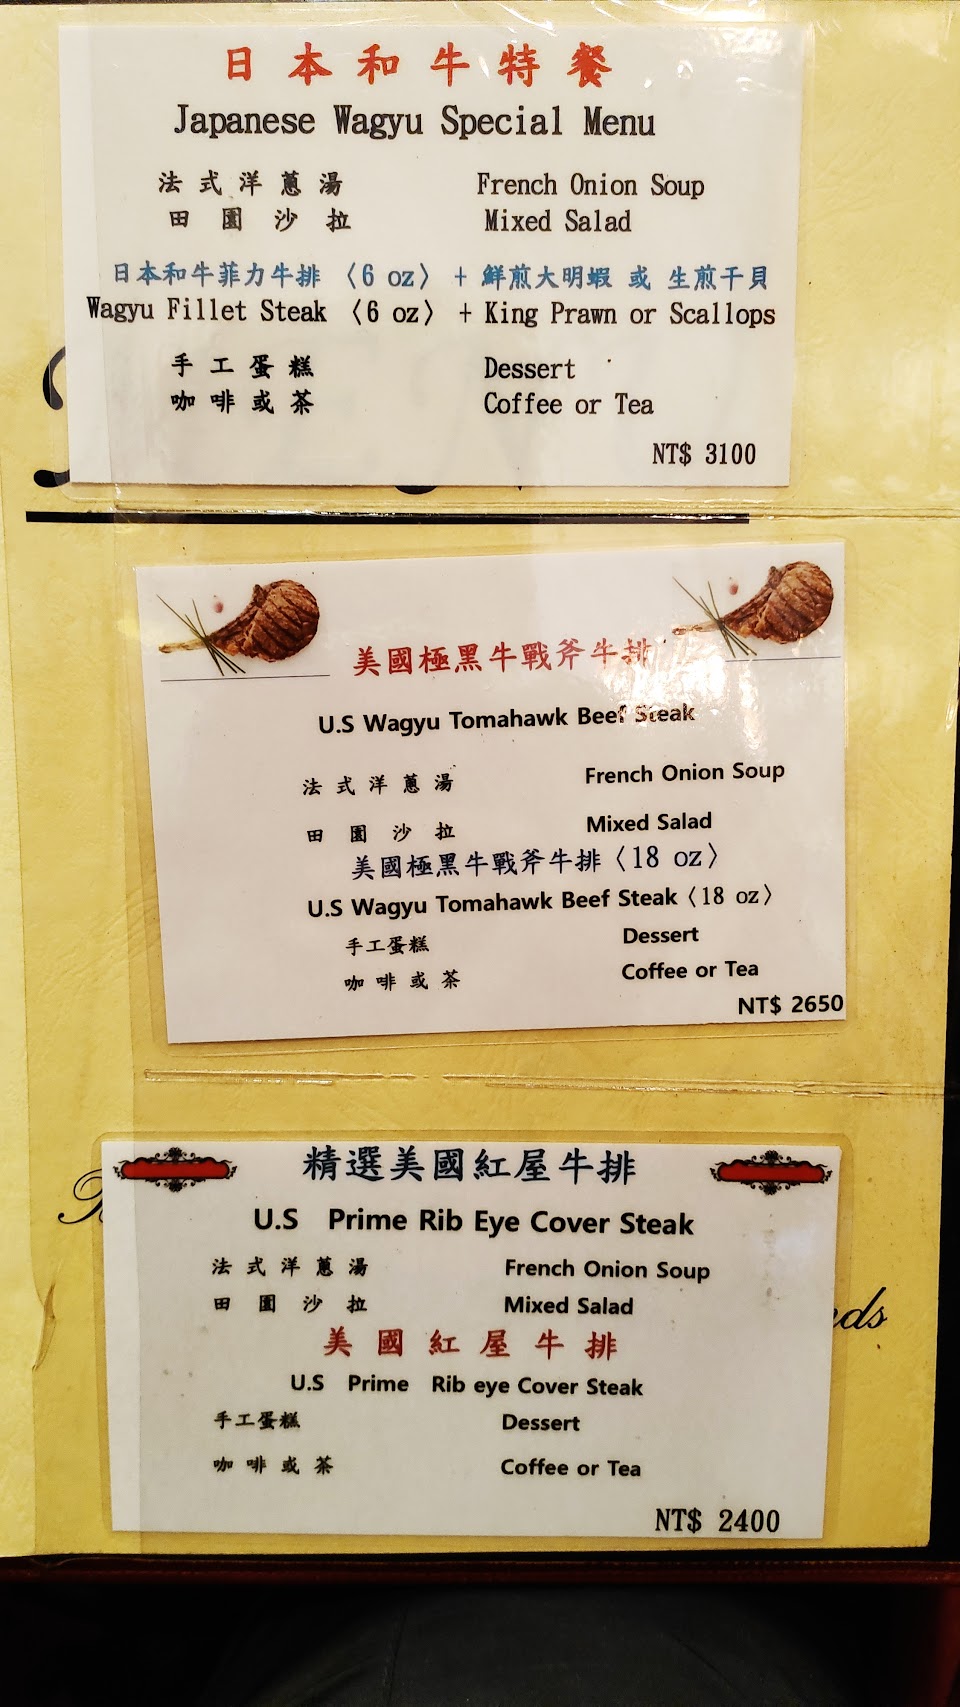 日本和牛特餐
Japanese Wagyu Special Menu
法式洋蔥湯 French Onion Soup
田園沙拉 Mixed Salad
日本和牛菲力牛排〈6 oz〉+ 鮮煎大明蝦 或 生煎干貝
Wagyu Fillet Steak〈6 oz〉+ King Prawn or Scallops
手工蛋糕 Dessert
咖啡或茶 Coffee or Tea
NT$ 3100
美國極黑牛戰斧牛排
U.S Wagyu Tomahawk Beef Steak
法式洋蔥湯 French Onion Soup
田園沙拉 Mixed Salad
美國極黑牛戰斧牛排〈18 oz〉
U.S Wagyu Tomahawk Beef Steak〈18 oz〉
手工蛋糕 Dessert
咖啡或茶 Coffee or Tea
NT$ 2650
精選美國紅屋牛排
U.S Prime Rib Eye Cover Steak
法式洋蔥湯 French Onion Soup
田園沙拉 Mixed Salad
美國紅屋牛排
U.S Prime Rib eye Cover Steak
手工蛋糕 Dessert
咖啡或茶 Coffee or Tea
NT$ 2400